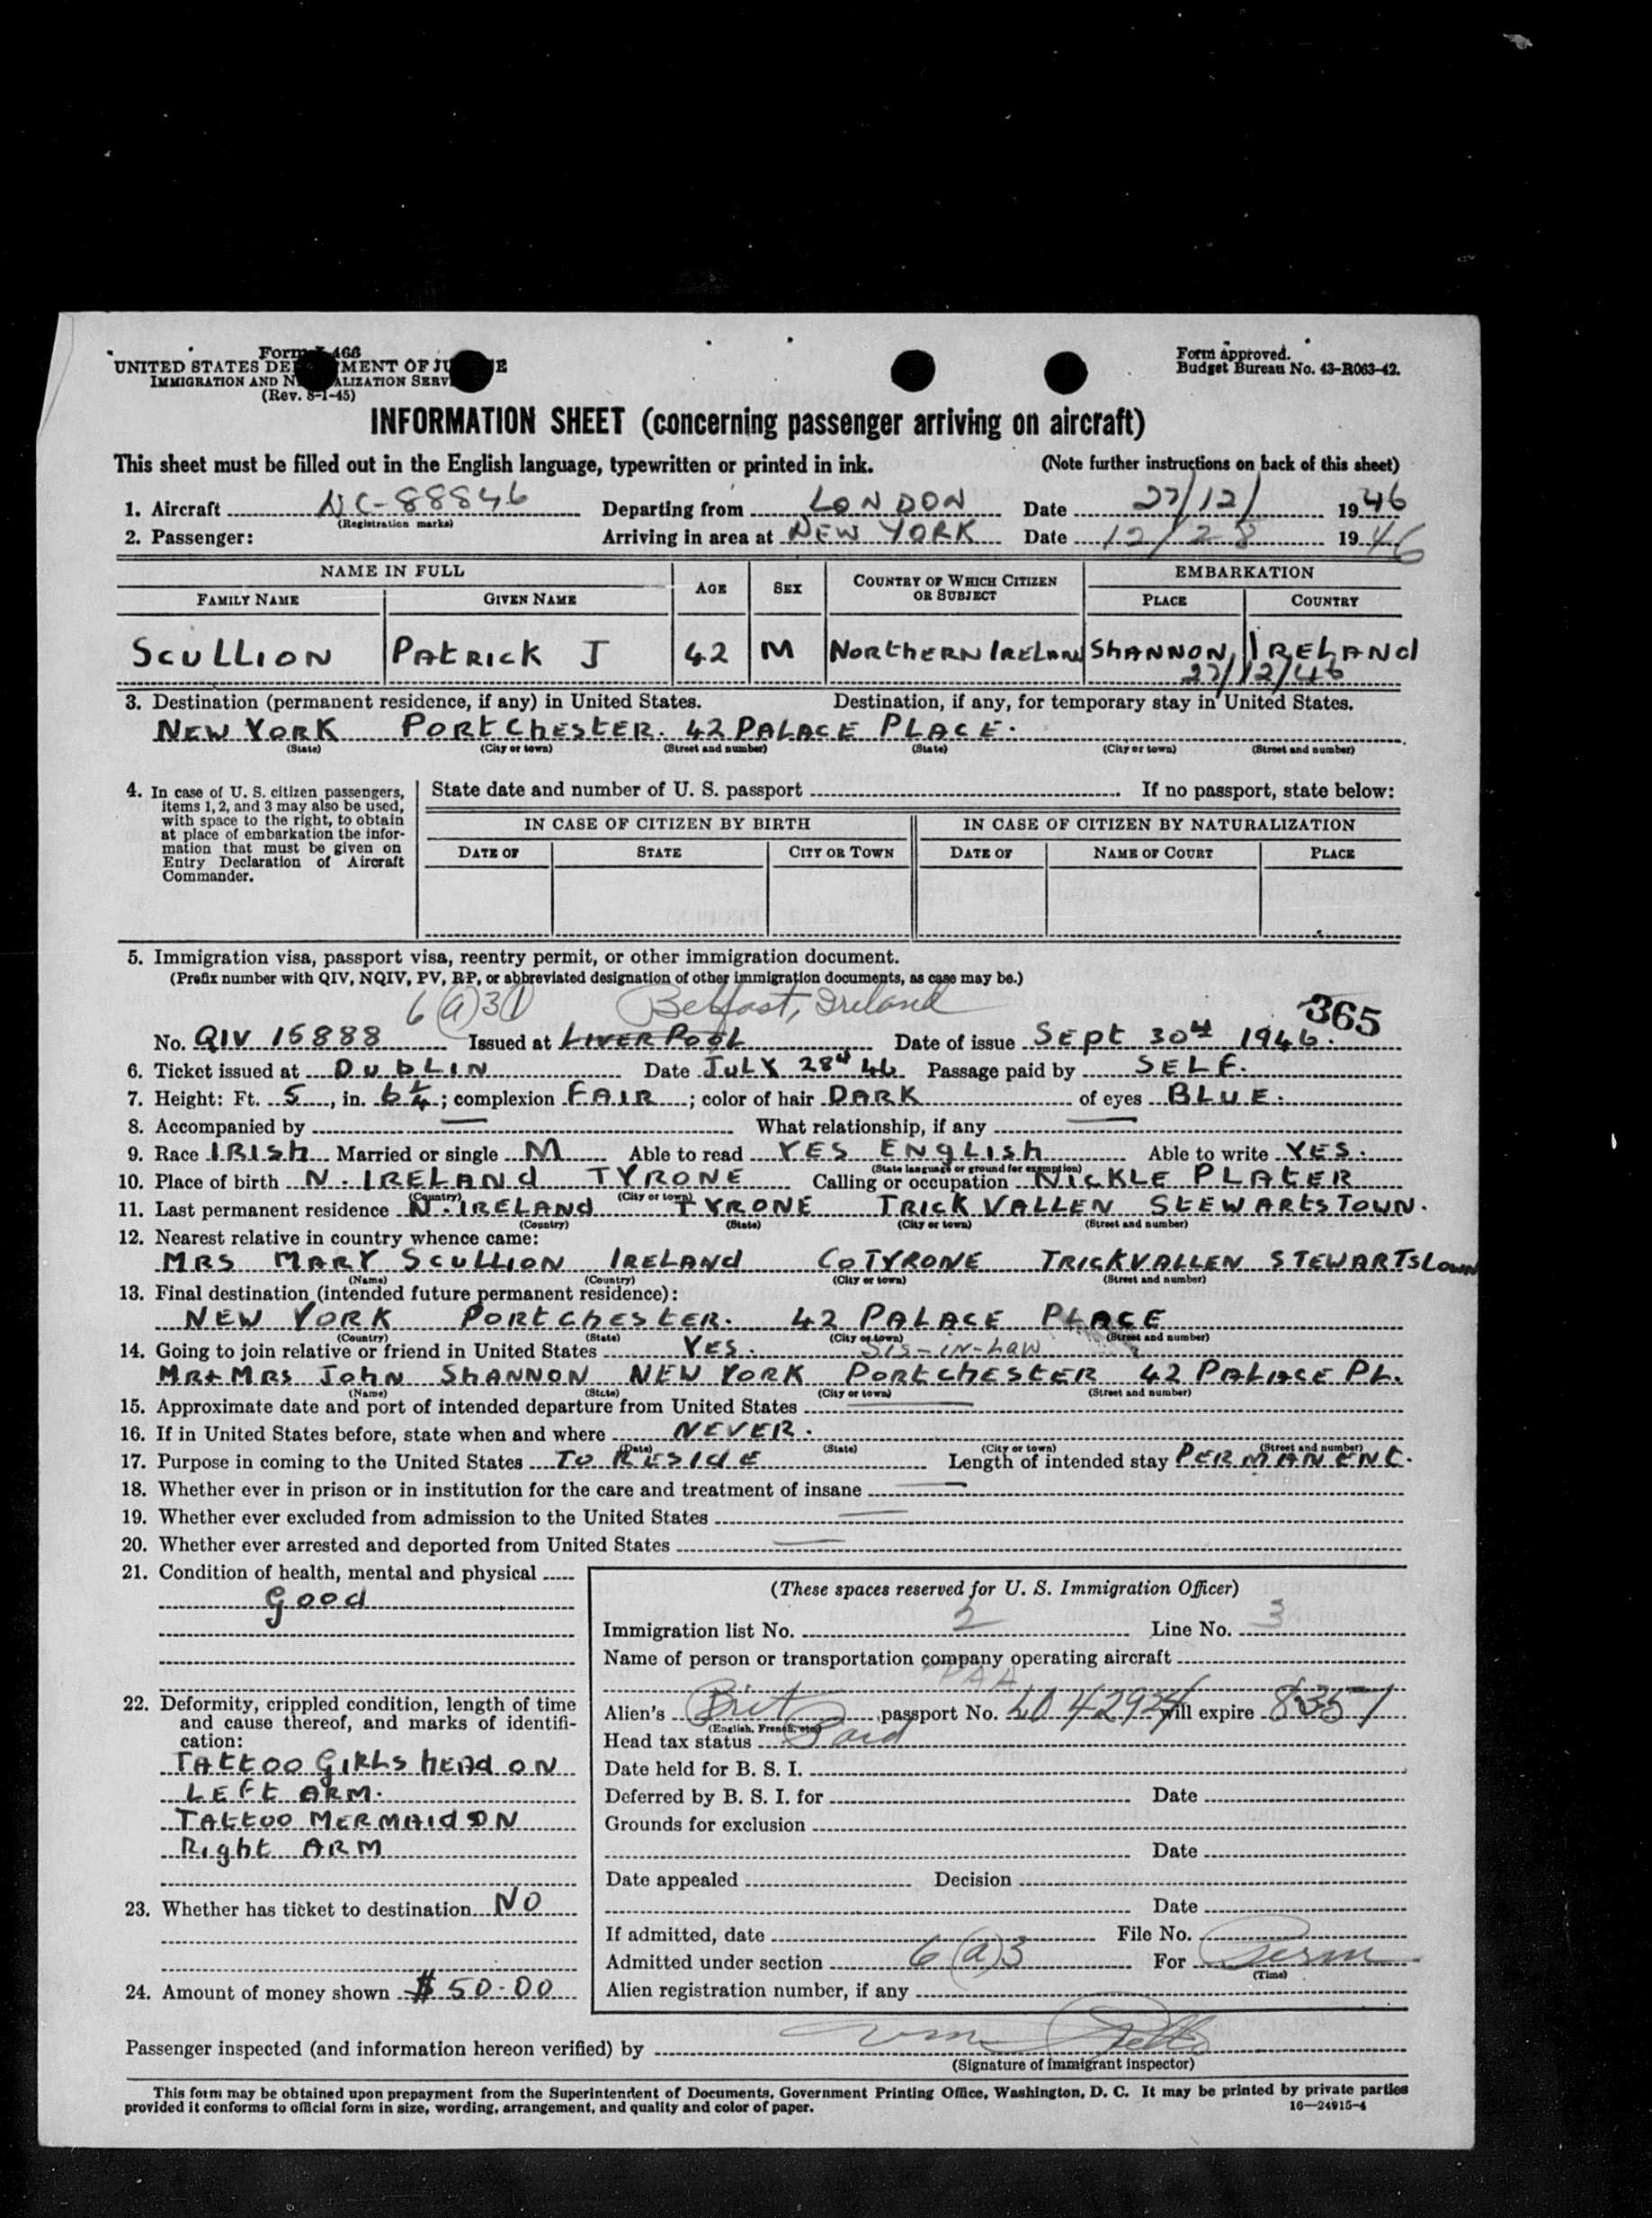 Form I-466
UNITED STATES DEPARTMENT OF JUSTICE
IMMIGRATION AND NATURALIZATION SERVICE
(Rev. 8-1-45)
Form approved.
Budget Bureau No. 43-R063-42.
INFORMATION SHEET (concerning passenger arriving on aircraft)
This sheet must be filled out in the English language, typewritten or printed in ink. (Note further instructions on back of this sheet)
1. Aircraft NC-88846 Departing from LONDON Date 27/12/ 1946
(Registration marks)
2. Passenger: Arriving in area at NEW YORK Date 12/28 1946
NAME IN FULL AGE SEX COUNTRY OF WHICH CITIZEN OR SUBJECT EMBARKATION
FAMILY NAME GIVEN NAME PLACE COUNTRY
SCULLION PATRICK J 42 M NORTHERN IRELAND SHANNON, IRELAND
27/12/46
3. Destination (permanent residence, if any) in United States. Destination, if any, for temporary stay in United States.
NEW YORK PORTCHESTER. 42 PALACE PLACE.
(State) (City or town) (Street and number) (State) (City or town) (Street and number)
4. In case of U. S. citizen passengers, items 1, 2, and 3 may also be used, with space to the right, to obtain at place of embarkation the information that must be given on Entry Declaration of Aircraft Commander.
State date and number of U. S. passport If no passport, state below:
IN CASE OF CITIZEN BY BIRTH IN CASE OF CITIZEN BY NATURALIZATION
DATE OF STATE CITY OR TOWN DATE OF NAME OF COURT PLACE
5. Immigration visa, passport visa, reentry permit, or other immigration document.
(Prefix number with QIV, NQIV, PV, RP, or abbreviated designation of other immigration documents, as case may be.)
6(a)3 Belfast, Ireland 365
No. QIV 15888 Issued at LIVERPOOL Date of issue SEPT 30th 1946.
6. Ticket issued at DUBLIN Date JULY 28th 46 Passage paid by SELF.
7. Height: Ft. 5, in. 6¼; complexion FAIR; color of hair DARK of eyes BLUE.
8. Accompanied by — What relationship, if any —
9. Race IRISH Married or single M Able to read YES ENGLISH Able to write YES.
(State language or ground for exemption)
10. Place of birth N. IRELAND TYRONE Calling or occupation NICKLE PLATER
(Country) (City or town)
11. Last permanent residence N. IRELAND TYRONE TRICKVALLEN STEWARTSTOWN.
(Country) (State) (City or town) (Street and number)
12. Nearest relative in country whence came:
MRS MARY SCULLION IRELAND CO TYRONE TRICKVALLEN STEWARTSTOWN
(Name) (Country) (City or town) (Street and number)
13. Final destination (intended future permanent residence):
NEW YORK PORTCHESTER. 42 PALACE PLACE
(Country) (State) (City or town) (Street and number)
14. Going to join relative or friend in United States YES. SIS-IN-LAW
MR+MRS JOHN SHANNON NEW YORK PORTCHESTER 42 PALACE PL.
(Name) (State) (City or town) (Street and number)
15. Approximate date and port of intended departure from United States —
16. If in United States before, state when and where NEVER.
(Date) (State) (City or town) (Street and number)
17. Purpose in coming to the United States TO RESIDE Length of intended stay PERMANENT.
18. Whether ever in prison or in institution for the care and treatment of insane —
19. Whether ever excluded from admission to the United States —
20. Whether ever arrested and deported from United States —
21. Condition of health, mental and physical
Good
22. Deformity, crippled condition, length of time and cause thereof, and marks of identification:
TATTOO GIRLS HEAD ON
LEFT ARM.
TATTOO MERMAID ON
RIGHT ARM
23. Whether has ticket to destination NO
24. Amount of money shown $50.00
(These spaces reserved for U. S. Immigration Officer)
Immigration list No. 2 Line No. 3
Name of person or transportation company operating aircraft
PAA
Alien's Brit passport No. L042924 will expire 8351
(English, French, etc.)
Head tax status Paid
Date held for B. S. I.
Deferred by B. S. I. for Date
Grounds for exclusion
Date
Date appealed Decision
Date
If admitted, date File No.
Admitted under section 6(a)3 For Perm
(Time)
Alien registration number, if any
Passenger inspected (and information hereon verified) by
(Signature of immigrant inspector)
This form may be obtained upon prepayment from the Superintendent of Documents, Government Printing Office, Washington, D. C. It may be printed by private parties
provided it conforms to official form in size, wording, arrangement, and quality and color of paper. 16—24915-4